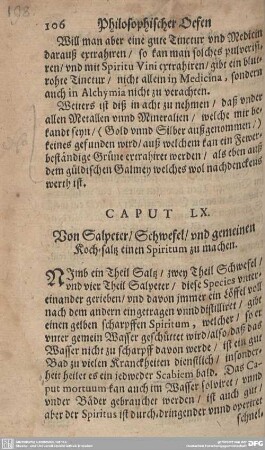 198
106 Philosophischer Oefen
Will man aber eine gute Tinctur vnd Medicin
darauß extrahiren / so kan man solches pulverisi-
ren / vnd mit Spiritu Vini extrahiren / gibt ein blut-
rohte Tinctur / nicht allein in Medicina, sondern
auch in Alchymia nicht zu verachten.
Weiters ist diß in acht zu nehmen / daß vnder
allen Metallen vnnd Mineralien / welche mir be-
kandt seyn / (Gold vnnd Silber außgenommen /)
keines gefunden wird / auß welchem kan ein Fewer-
beständige Grüne extrahiret werden / als eben auß
dem güldischen Galmey welches wol nachdenckens
werth ist.
CAPUT LX.
Von Salpeter / Schwefel / vnd gemeinen
Koch-saltz einen Spiritum zu machen.
NJmb ein Theil Saltz / zwey Theil Schwefel /
vnd vier Theil Salpeter / diese Species vnter-
einander gerieben / vnd davon jmmer ein Löffel voll
nach dem andern eingetragen vnnd distilliret / gibt
einen gelben scharpffen Spiritum, welcher / so er
vnter gemein Wasser geschüttet wird / also / daß das
Wasser nicht zu scharpff davon werde / ist ein gut
Bad zu vielen Kranckheiten dienstlich / insonder-
heit heilet es ein jedweder Scabiem bald. Das Ca-
put mortuum kan auch im Wasser solviret / vnnd
vnder Bäder gebraucher werden / ist auch gut /
aber der Spiritus ist durch-dringender vnnd operiret
schnel-